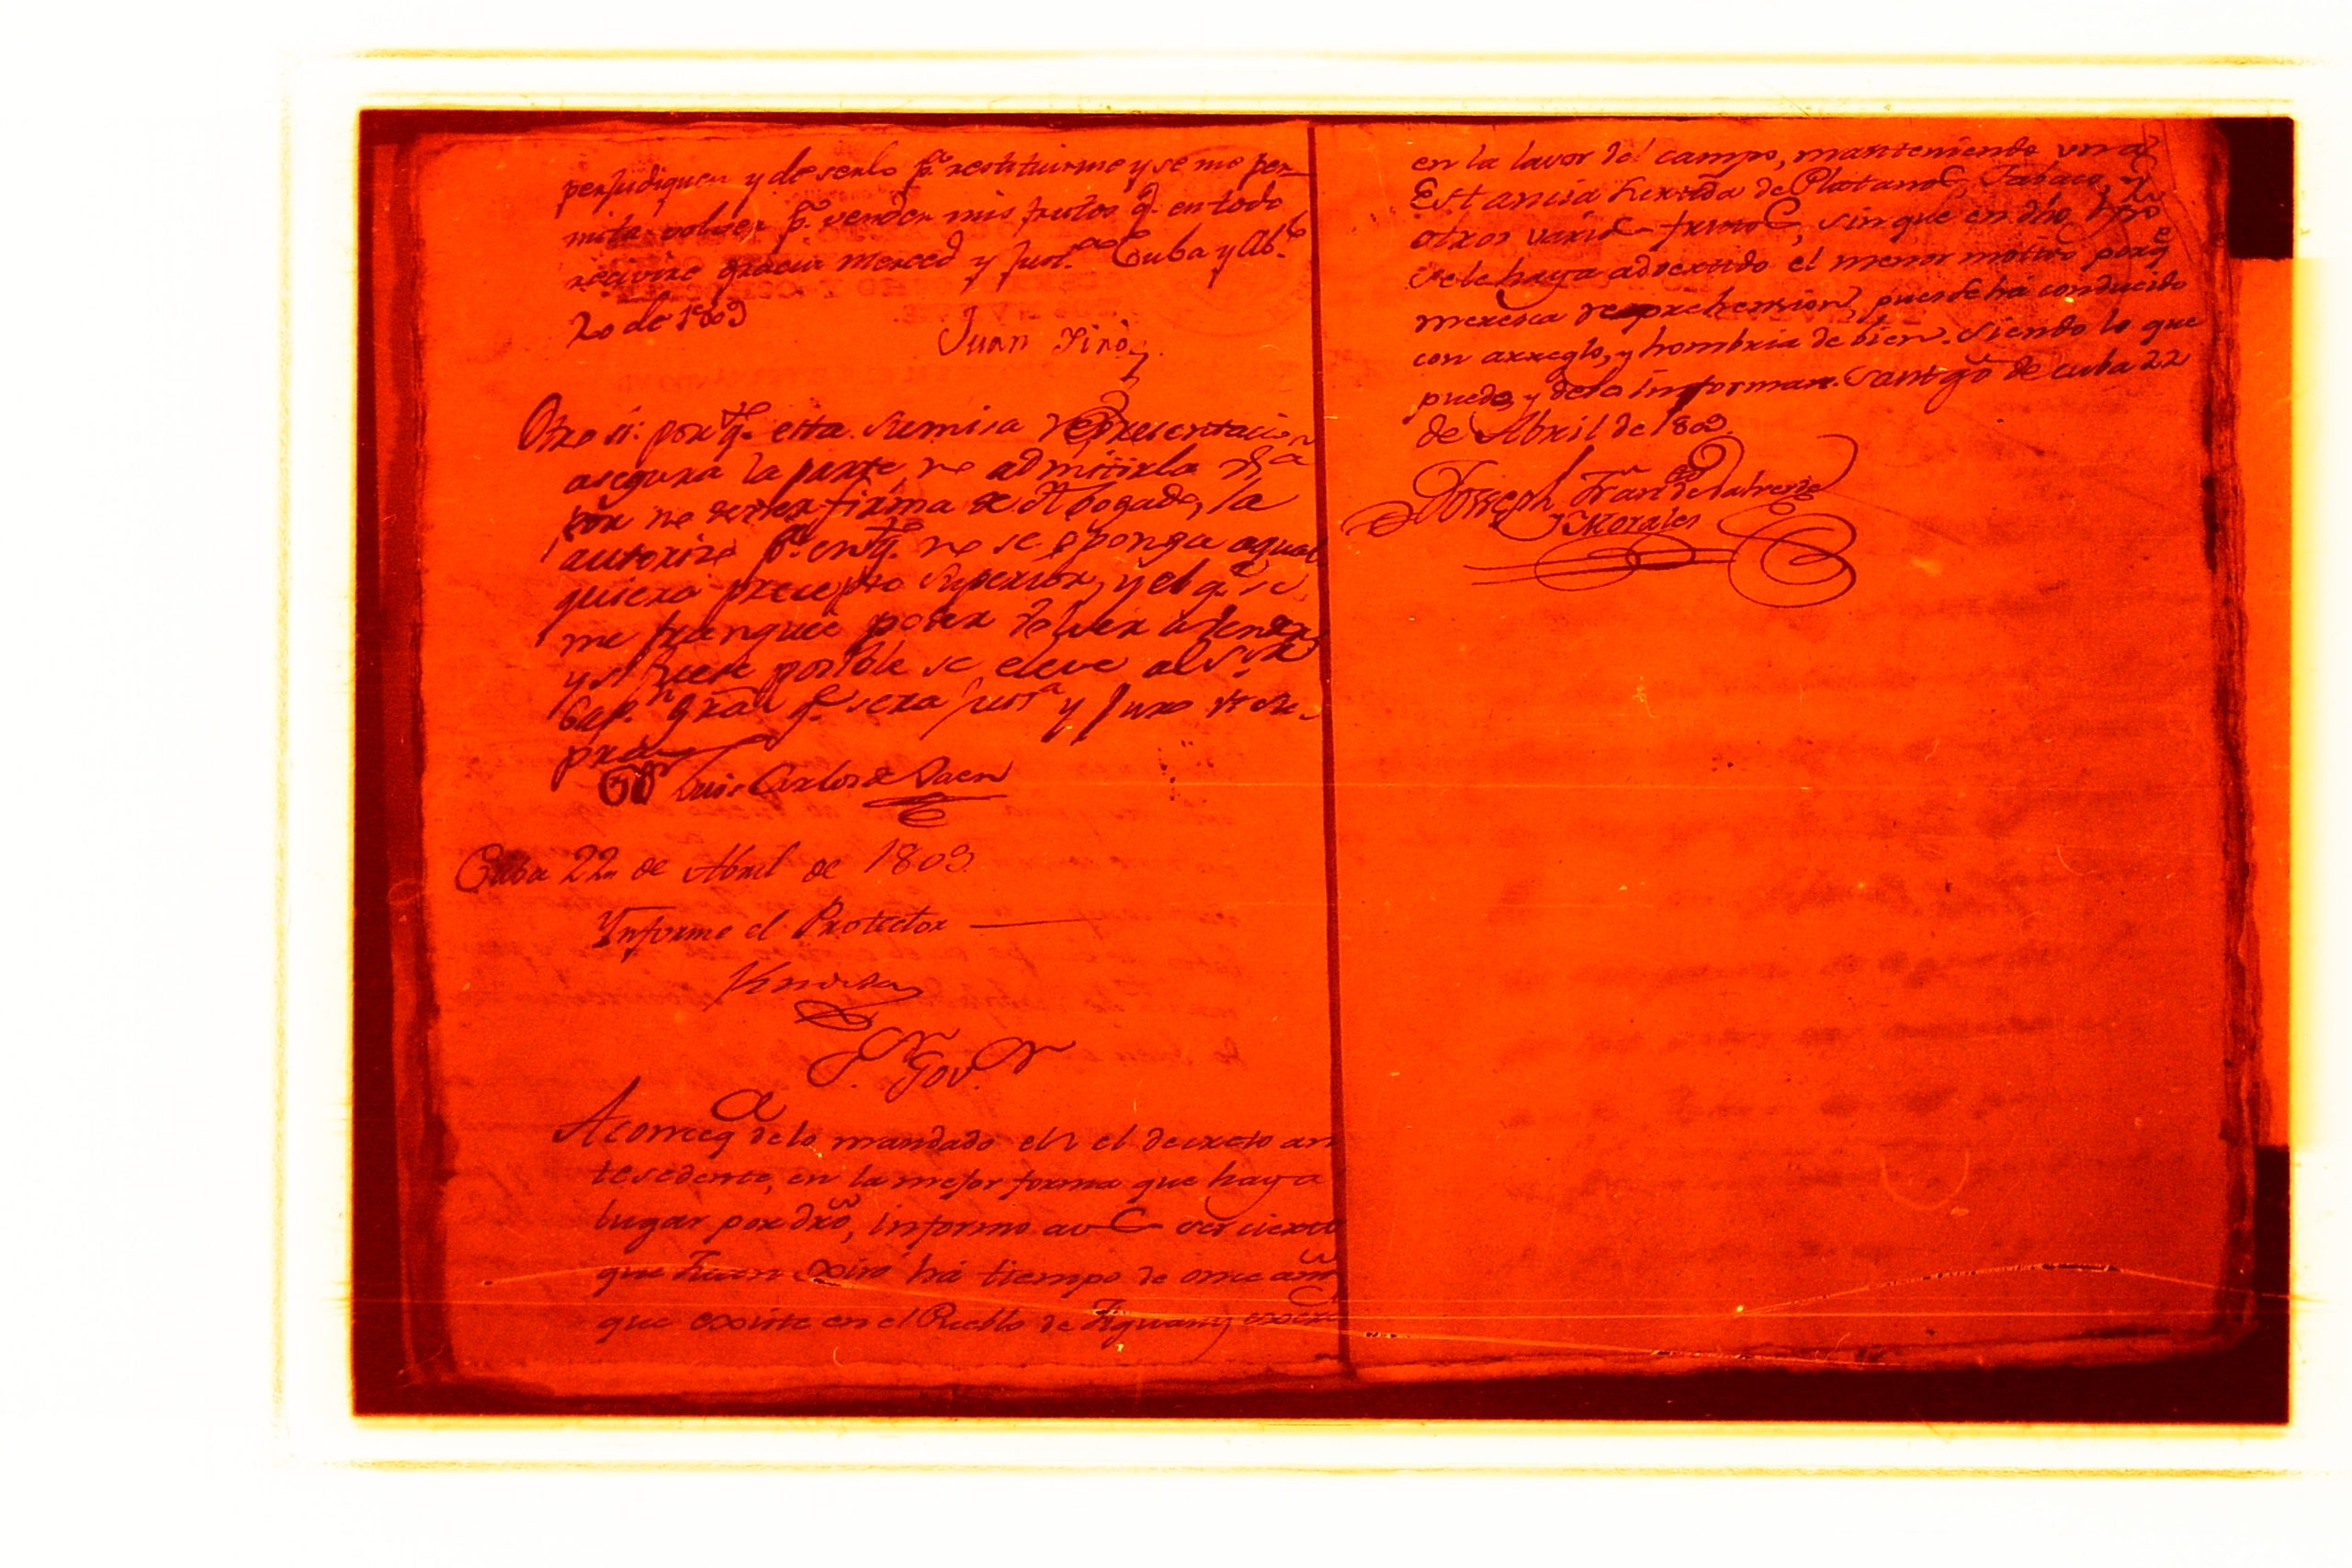 perjudiquen y de serlo pª restituirme y se me per-
mita volver pª vender mis frutos q.e en todo
recivire gracia merced y Just.ª Cuba y Ab.l
20 de 1809
Juan Jiró
Otro si: porq.e esta sumisa representacion
asegura la parte, no admitirla
por no tener firma de Abogado, la
autorizo pª enq.e no se oponga aqual
quiera precepto Superior, y el q.e se
me franquee poder volver
y si fuese posible se eleve al S.or
Cap.n Gral q.e sera just.ª y juro
pra
D.r Luis Carlos de Jaen
Cuba 22 de Abril de 1809
Ynforme el Protector
Kindelan
S.or Gov.or
A conseqª delo mandado en el decreto an
tesedente, en la mejor forma que haya
lugar por dro, informo a ser cierto
que Juan Xiró há tiempo de onse añs
que exsiste en el Pueblo de Jiguany
en la lavor del campo, manteniendo una
Estancia surtida de Platanos, Tabaco, y
otros varios frutos, sin que en dho tpo
sele haya advertido el menor motivo porq.e
meresca reprehension, pues se há conducido
con arreglo, y hombria de bien. Siendo lo que
puedo, y debo informar. Santgo de Cuba 22
de Abril de 1809.
Josseph Fran.co de
y Morales